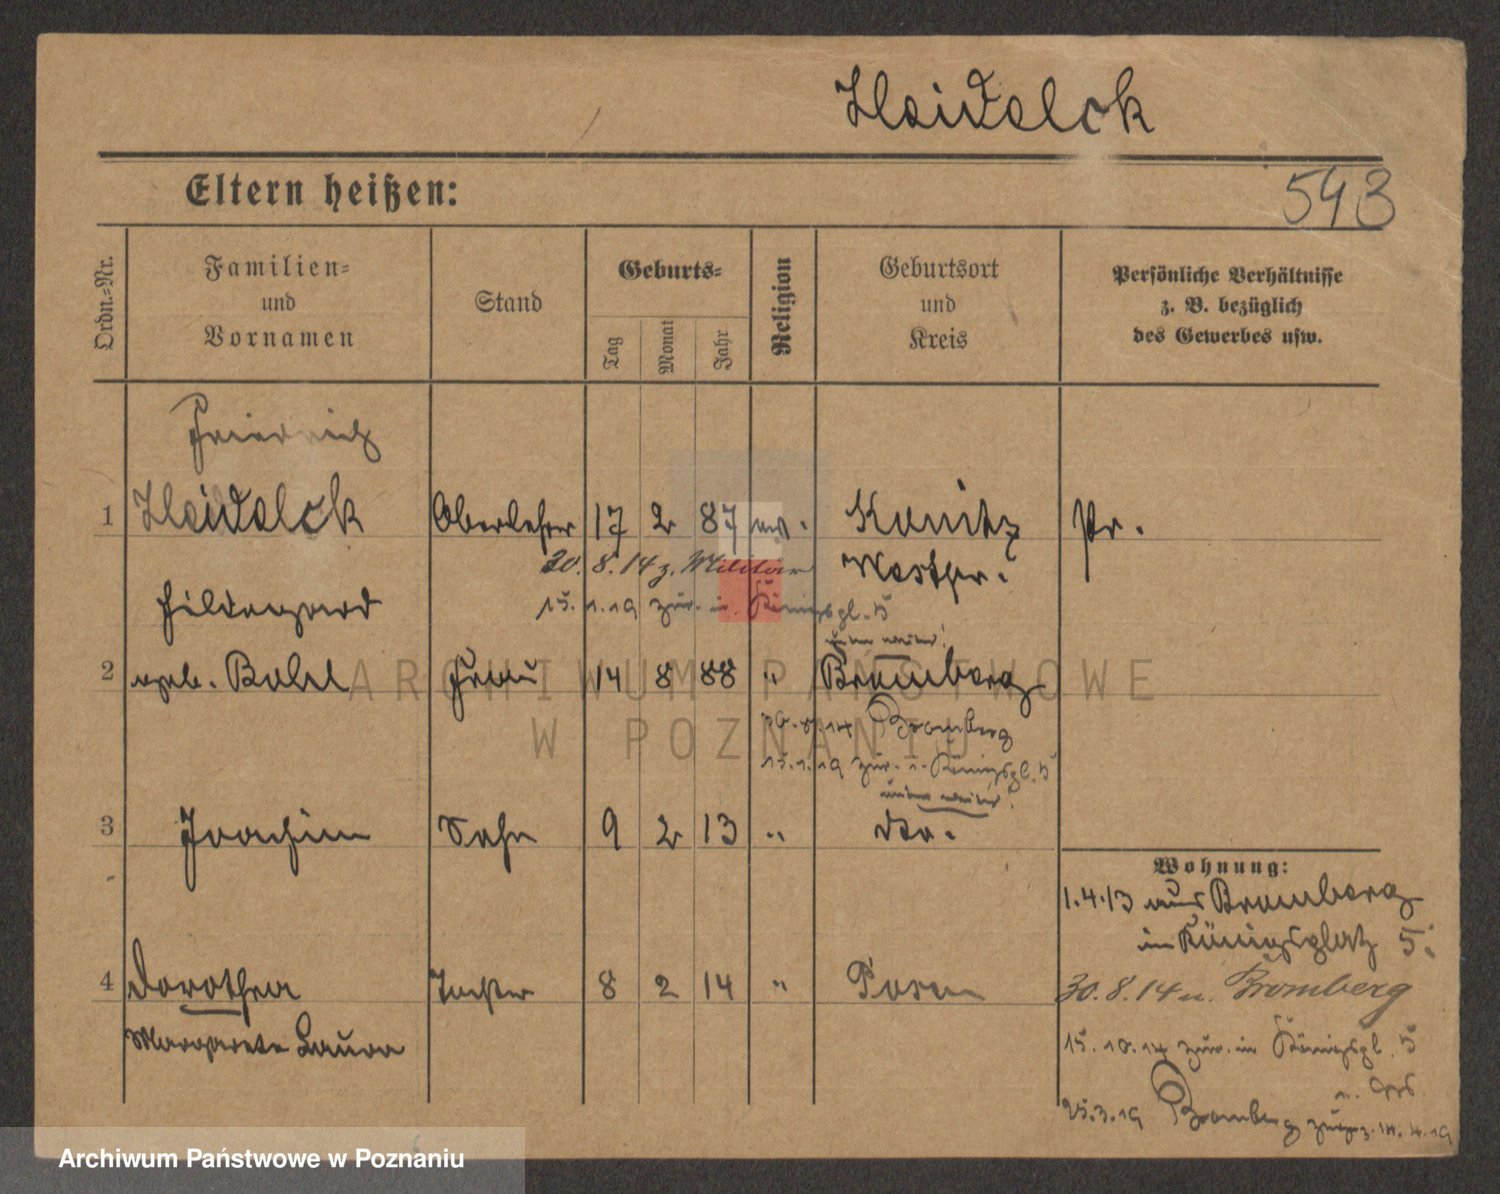 Heidelck
Eltern heißen:
543
Ordn.-Nr.
Familien-
und
Vornamen
Stand
Geburts-
Tag
Monat
Jahr
Religion
Geburtsort
und
Kreis
Persönliche Verhältnisse
z. B. bezüglich
des Gewerbes usw.
Friedrich
1 Heidelck Oberlehrer 17 2 87 ev. Konitz Pr.
Westpr.
30.8.14 z. Militär
Hildegard
15.1.19 zur. in Königspl. 5
2 geb. Frau 14 8 88 " Bromberg
30.8.14 Bromberg
15.1.19 zur. in Königspl. 5
3 Joachim Sohn 9 2 13 " do.
Wohnung:
1.4.13 aus Bromberg
in Königsplatz 5.
4 Dorothea Tochter 8 2 14 " Posen
30.8.14 n. Bromberg
Margarete Laura
15.10.14 zur. in Königspl. 5
25.3.19 Bromberg 14.4.19
ARCHIWUM PAŃSTWOWE
W POZNANIU
Archiwum Państwowe w Poznaniu